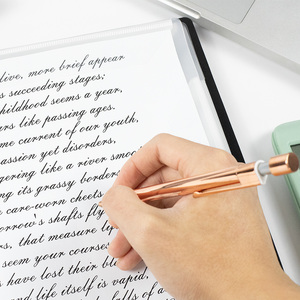 live, more brief appear
s succeeding stages;
childhood seems a year,
urs like passing ages.
me current of our youth,
passion yet disorders,
gering like a river smoo
ng its grassy borders
e care-worn cheek
orrow's shafts fly
rs, that measure li
seem your courses
s have lost their bl
and life itself is vapid,
falls of